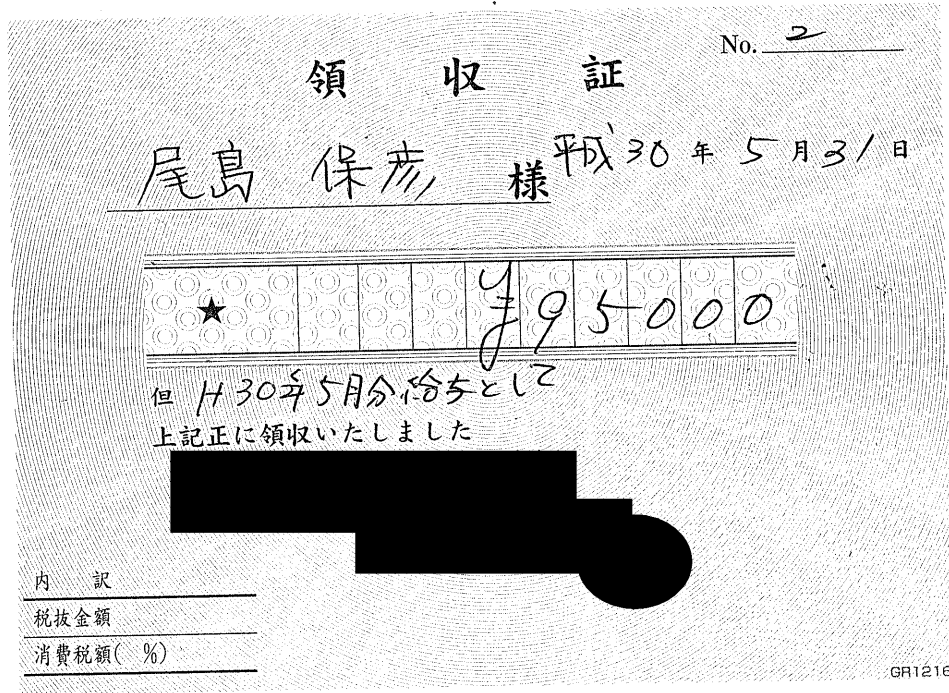 No. 2
領収証
尾島 保彦 様 平成30年5月31日
★ ¥95000
但 H30年5月分給与として
上記正に領収いたしました
内訳
税抜金額
消費税額( %)
GR1216